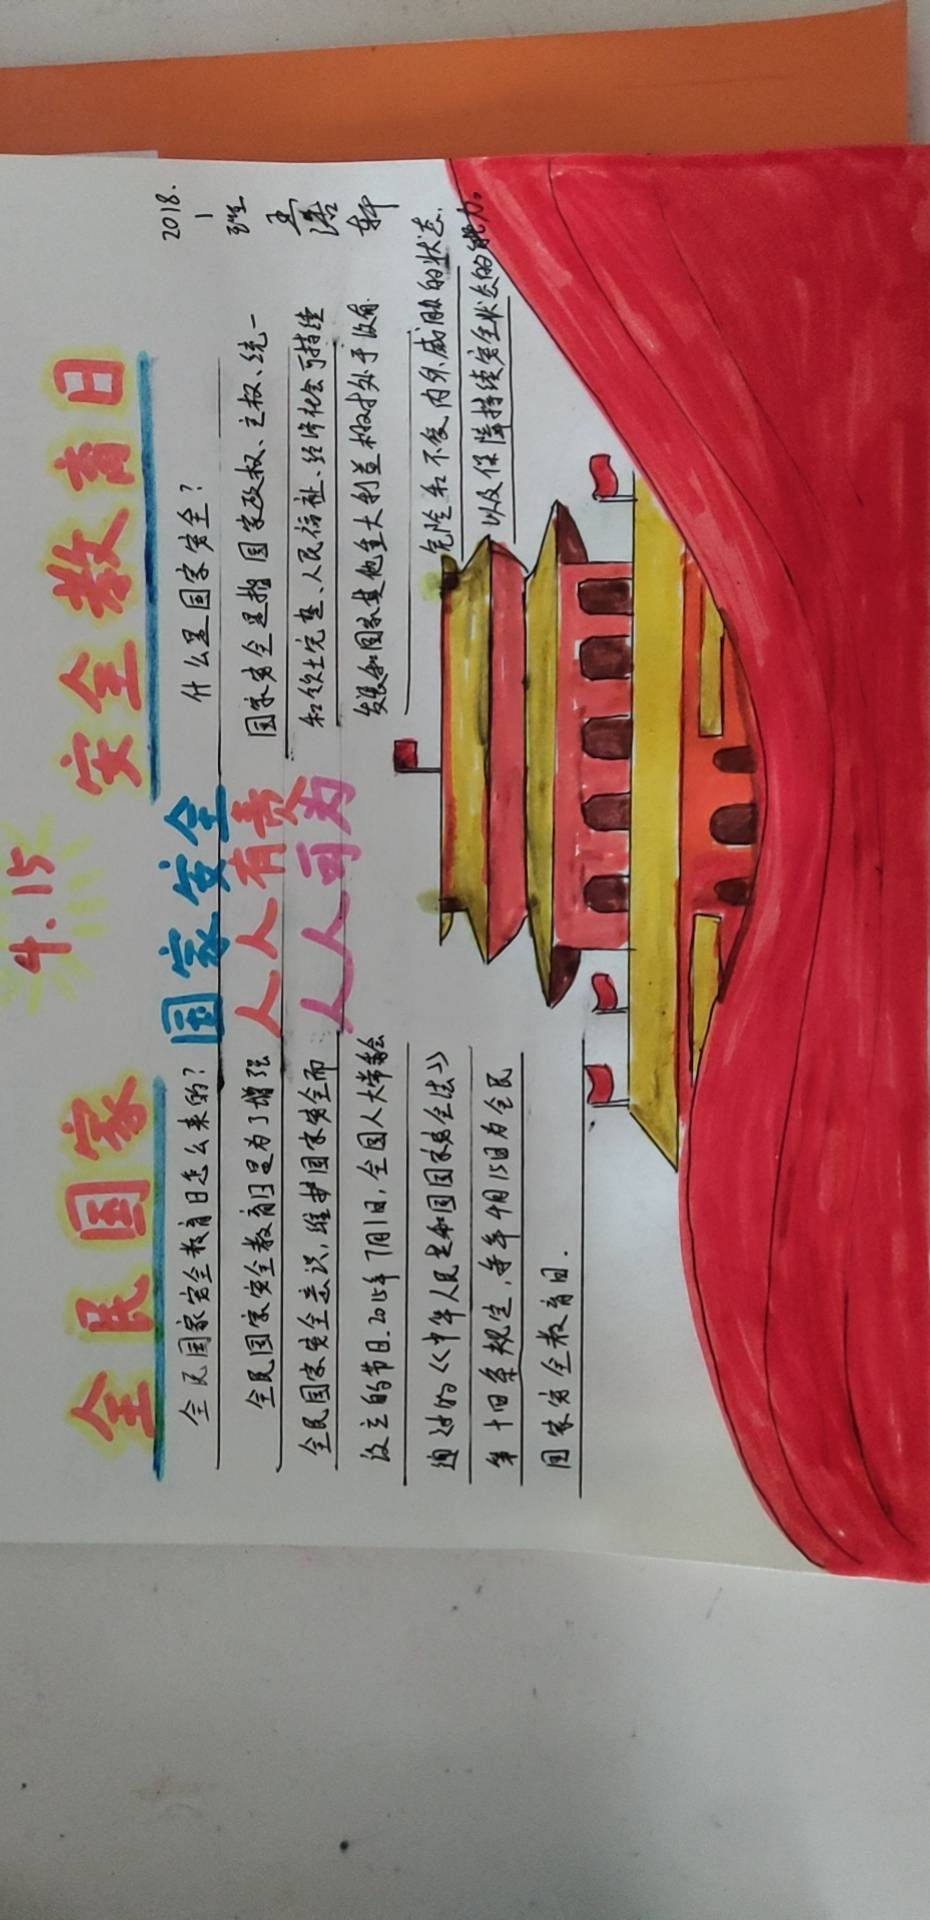 4.15
全民国家
安全教育日
国家安全
人人有责
人人可为
全民国家安全教育日怎么来的?
全民国家安全教育日是为了增强
全民国家安全意识,维护国家安全而
设立的节日.2015年7月1日,全国人大常委会
通过的《《中华人民共和国国家安全法》》
第十四条规定,每年4月15日为全民
国家安全教育日.
什么是国家安全?
国家安全是指国家政权、主权、统一
和领土完整、人民福祉、经济社会可持续
发展和国家其他重大利益相对处于没有
危险和不受内外威胁的状态,
以及保障持续安全状态的能力。
2018.
1
班
轩